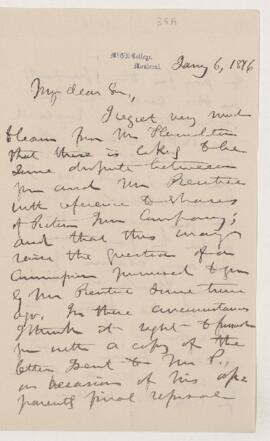 38A
McGill College
Montreal
Jany 6, 1876
My dear Sir,
I regret very much
to learn from Mr
that there is likely to be
some dispute between
you and Mr Prentice
with reference to shares
of Company;
and that this may
raise the question of a
Commission promised to you
by Mr Prentice some time
ago. In these circumstances
I think it right to furnish
you with a copy of the
letter sent to Mr P.,
on occasion of his ap-
parently final refusal